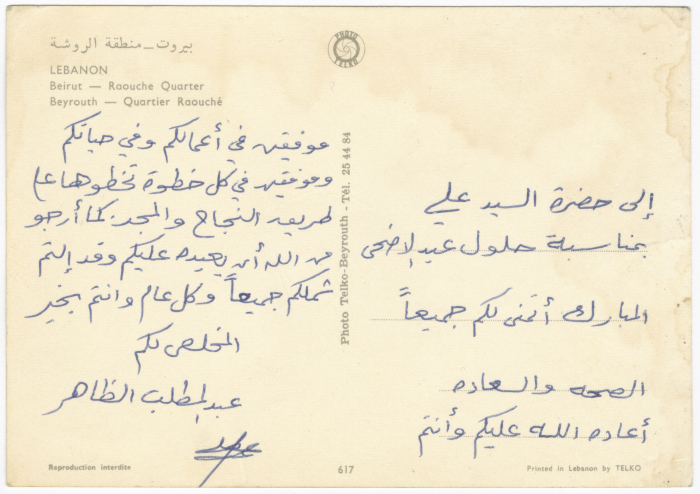 بيروت — منطقة الروشة
LEBANON
Beirut — Raouche Quarter
Beyrouth — Quartier Raouché
PHOTO
TELKO
إلى حضرة السيد علي
بمناسبة حلول عيد الاضحى
المبارك أتمنى لكم جميعاً
الصحه والسعاده
أعاده الله عليكم وأنتم
موفقين في أعمالكم وفي حياتكم
وموفقين في كل خطوة تخطوها على
طريق النجاح والمجد. كما أرجو
من الله أن يعيده عليكم وقد إلتم
شملكم جميعاً وكل عام وانتم بخير
المخلص لكم
عبد المطلب الظاهر
Photo Telko-Beyrouth - Tél. 25 44 84
Reproduction interdite
617
Printed in Lebanon by TELKO